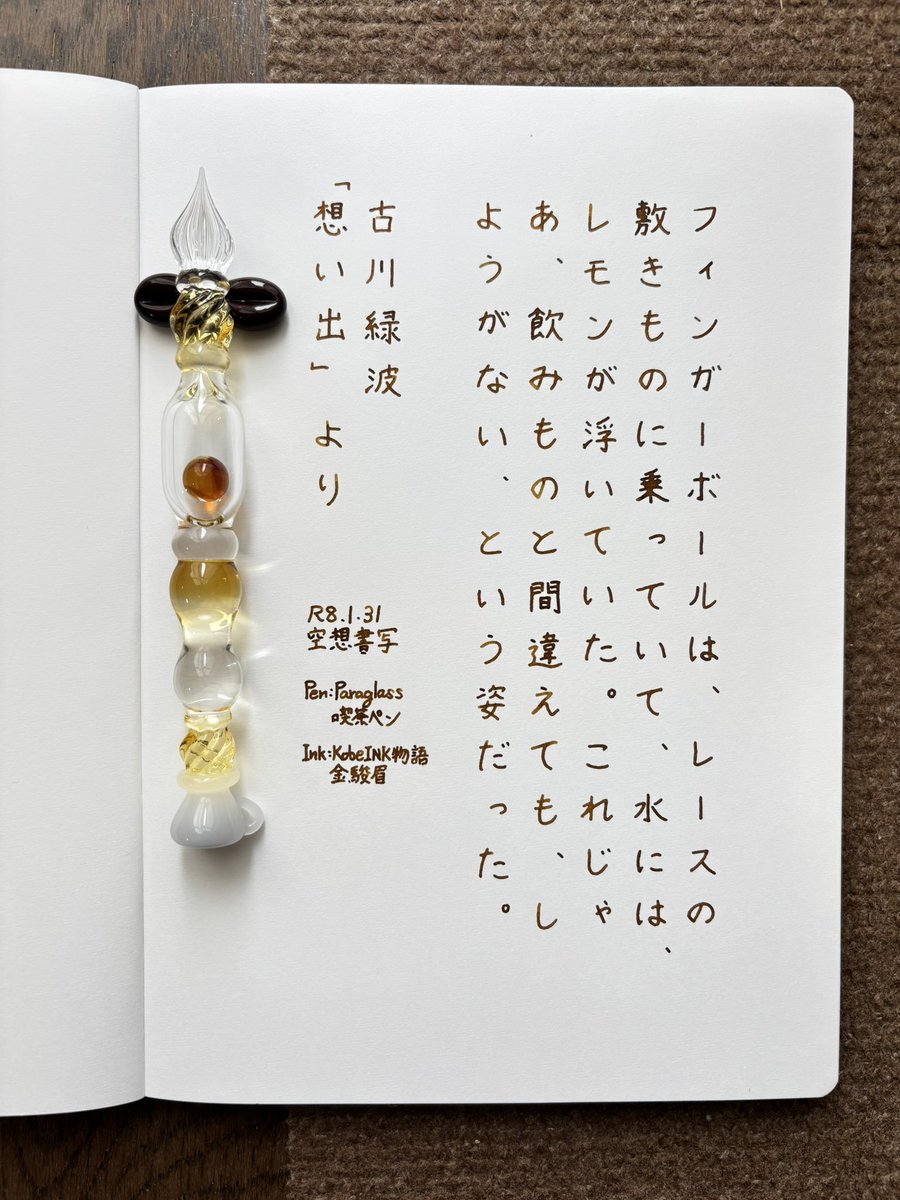 フィンガーボールは、レースの
敷きものに乗っていて、水には、
レモンが浮いていた。これじゃ
あ、飲みものと間違えても、し
ようがない、という姿だった。
古川緑波
「想い出」より
R8.1.31
空想書写
Pen:Paraglass
喫茶ペン
Ink:KobeINK物語
金駿眉